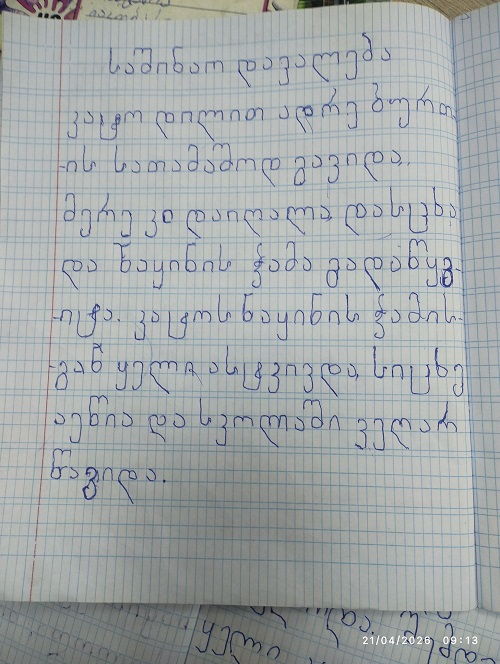 საშინაო დავალება
კატო დილით ადრე ბურთ-
ის სათამაშოდ გავიდა.
მერე კი დაიღალა დასცხა
და ნაყინის ჭამა გადაწყვ-
იტა. კატოს ნაყინის ჭამის-
გან ყელი ასტკივდა, სიცხე
აუწია და სკოლაში ველარ
წავიდა.
21/04/2026 09:13